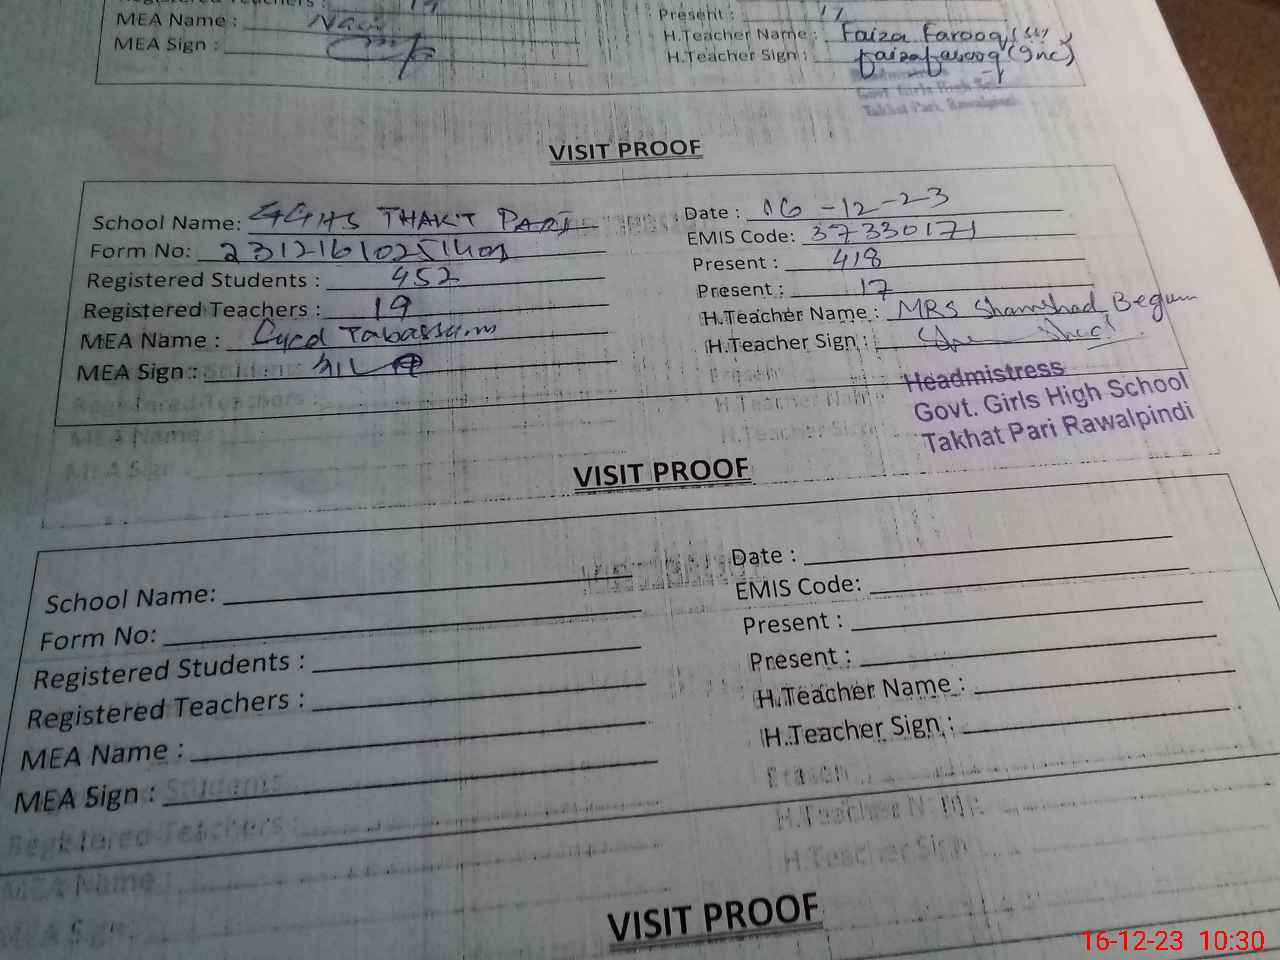 MEA Name :
MEA Sign :
Present : 17
H.Teacher Name : Faiza Farooq
H.Teacher Sign : faizafarooq (Inc)
Govt. Girls High
Takhat Pari, Rawalpindi
VISIT PROOF
School Name: GGHS THAKT PARI Date : 16-12-23
Form No: EMIS Code: 37330171
Registered Students : 452 Present : 418
Registered Teachers : 19 Present : 17
MEA Name : Syed Tabassum H.Teacher Name : MRS Shamshad Begum
MEA Sign : H.Teacher Sign :
Headmistress
Govt. Girls High School
Takhat Pari Rawalpindi
VISIT PROOF
School Name: Date :
Form No: EMIS Code:
Registered Students : Present :
Registered Teachers : Present :
MEA Name : H.Teacher Name :
MEA Sign : H.Teacher Sign :
VISIT PROOF
16-12-23 10:30